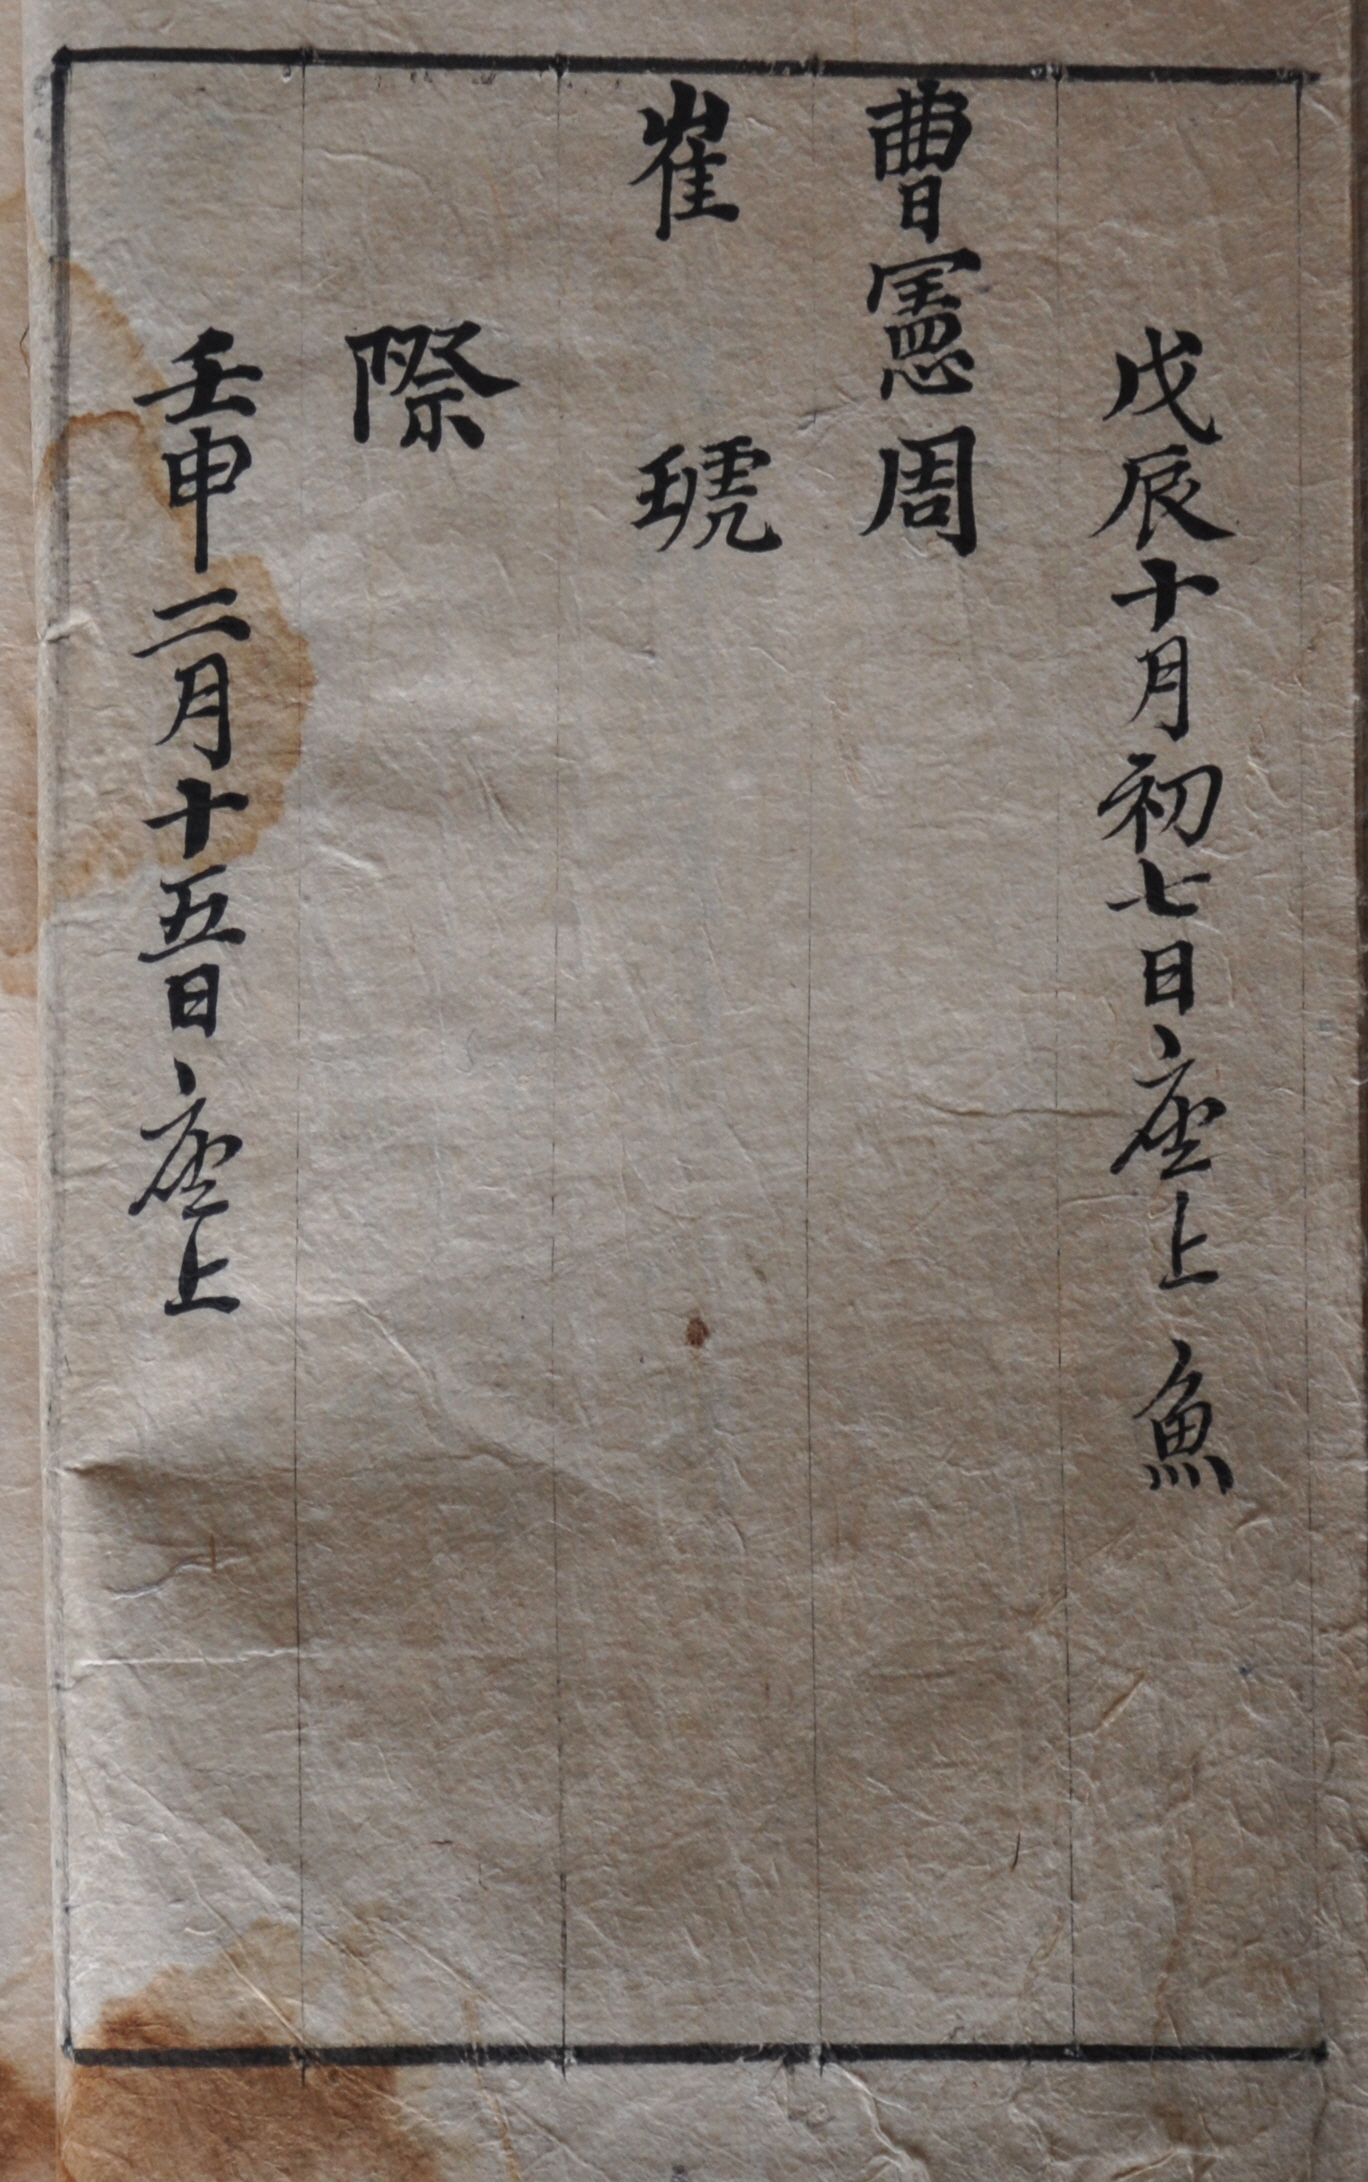 戊辰十月初七日座上 魚
曺憲周
崔 琥
際
壬申二月十五日座上